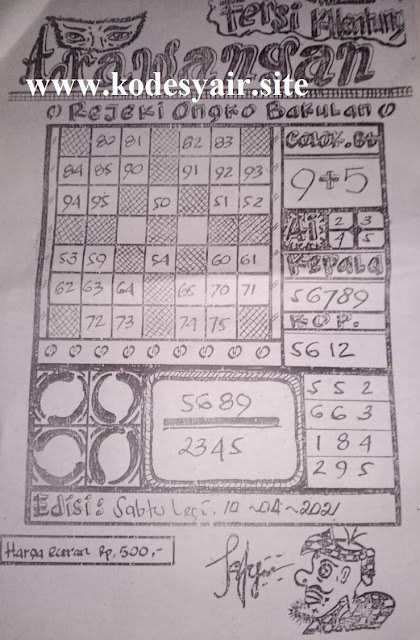 Fersi Klentung
Arawangan
www.kodesyair.site
Rejeki Ongko Bakulan
80 81 82 83
84 85 90 91 92 93
94 95 50 51 52
53 59 54 60 61
62 63 64 65 70 71
72 73 74 75
9+5
Ai: 2 3
1 5
Kepala
56789
KOP.
5612
5689
2345
552
663
184
295
Edisi: Sabtu Legi. 10~04~2021
Harga eceran Rp. 500,-